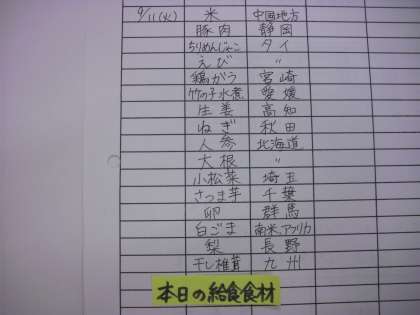 9/11(火) 米 中国地方
豚肉 静岡
ちりめんじゃこ タイ
えび 〃
鶏がら 宮崎
竹の子水煮 愛媛
生姜 高知
ねぎ 秋田
人参 北海道
大根 〃
小松菜 埼玉
さつま芋 千葉
卵 群馬
白ごま 南米、アフリカ
梨 長野
干し椎茸 九州
本日の給食食材